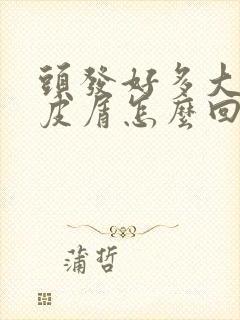 頭發好多大
皮屑怎麼回
蒲哲